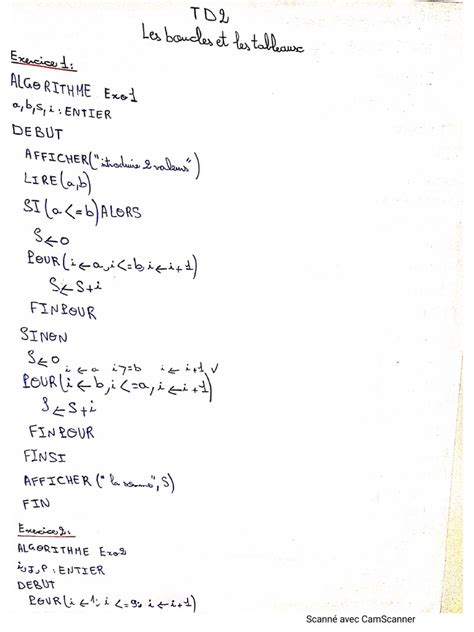 TD2
Les boucles et les tableaux
Exercice 1:
ALGORITHME Exo1
a, b, s, i : ENTIER
DEBUT
AFFICHER("introduire 2 valeurs")
LIRE(a,b)
SI(a<=b)ALORS
S←0
POUR(i←a, i<=b, i←i+1)
S←S+i
FINPOUR
SINON
S←0
i←a i>=b i←i+1 ✓
POUR(i←b, i<=a, i←i+1)
S←S+i
FINPOUR
FINSI
AFFICHER ("la somme", S)
FIN
Exercice 2:
ALGORITHME Exo2
i, J, P : ENTIER
DEBUT
POUR(i←1, i<=9, i←i+1)
Scanné avec CamScanner